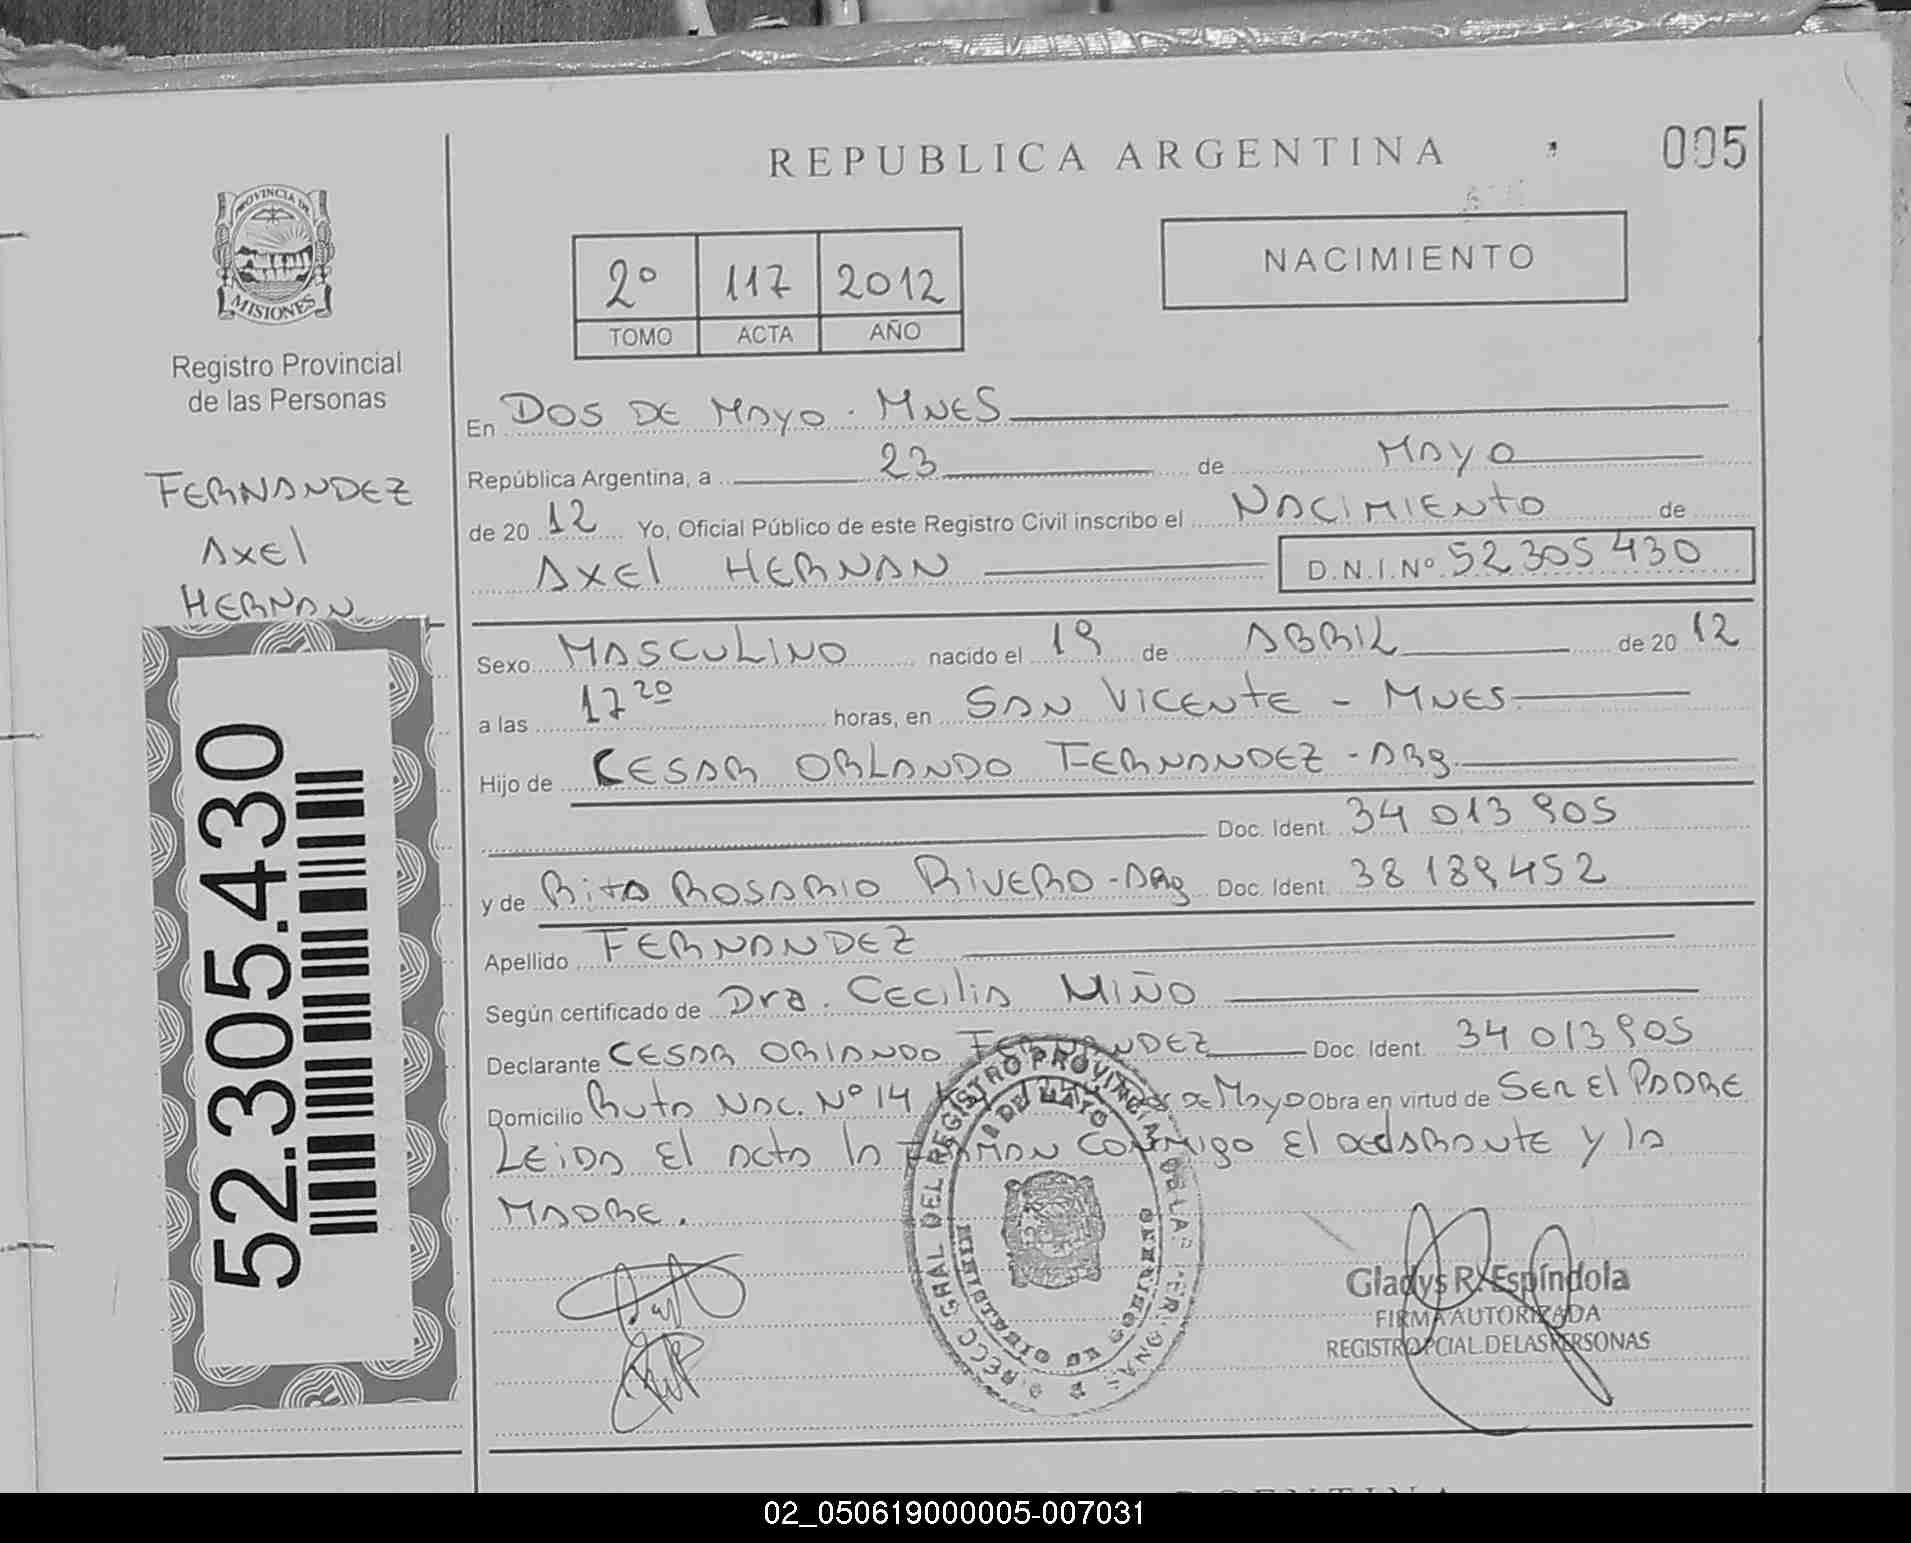 REPUBLICA ARGENTINA
005
PROVINCIA DE
MISIONES
Registro Provincial
de las Personas
FERNANDEZ
Axel
HERNAN
52.305.430
2º 117 2012
TOMO ACTA AÑO
NACIMIENTO
En DOS DE MAYO - MNES
República Argentina, a 23 de MAYO
de 20 12 Yo, Oficial Público de este Registro Civil inscribo el NACIMIENTO de
Axel HERNAN D.N.I.Nº 52 305 430
Sexo MASCULINO nacido el 19 de ABRIL de 20 12
a las 17 20 horas, en SAN VICENTE - MNES
Hijo de CESAR ORLANDO FERNANDEZ - ARg
Doc. Ident. 34 013 905
y de Rita ROSARIO RIVERO - ARg Doc. Ident. 38 189 452
Apellido FERNANDEZ
Según certificado de Dra. Cecilia MIÑO
Declarante CESAR ORLANDO FERNANDEZ Doc. Ident. 34 013 905
Domicilio Ruta NAC. Nº 14 de Mayo Obra en virtud de SER El PADRE
LEIDA El acta la FIRMAN CONMIGO El declarante y la
MADRE.
DIRECC GRAL DEL REGISTRO PROVINCIAL DE LAS PERSONAS
2 DE MAYO
MINISTERIO DE GOBIERNO
Gladys R. Espíndola
FIRMA AUTORIZADA
REGISTRO PCIAL. DE LAS PERSONAS
02_050619000005-007031